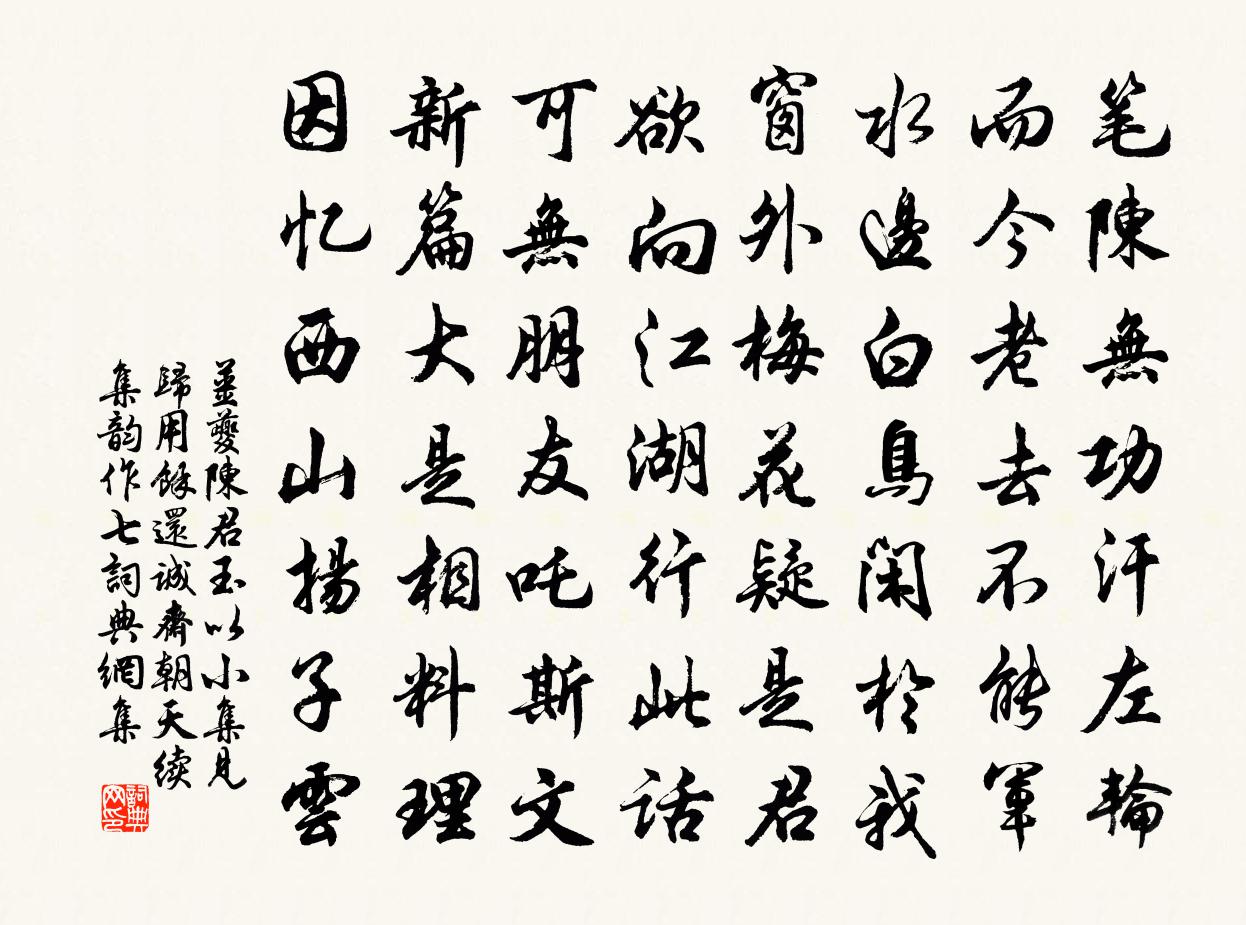 笔陳無功汗左輪
而今老去不能軍
水邊白鳥闲於我
窗外梅花疑是君
欲向江湖行此話
可無朋友吒斯文
新篇大是相料理
因忆西山揚子雲
並夔陳君玉以小集見
歸用餘還诚齋朝天续
集韵作七詞典網集
詞典网印